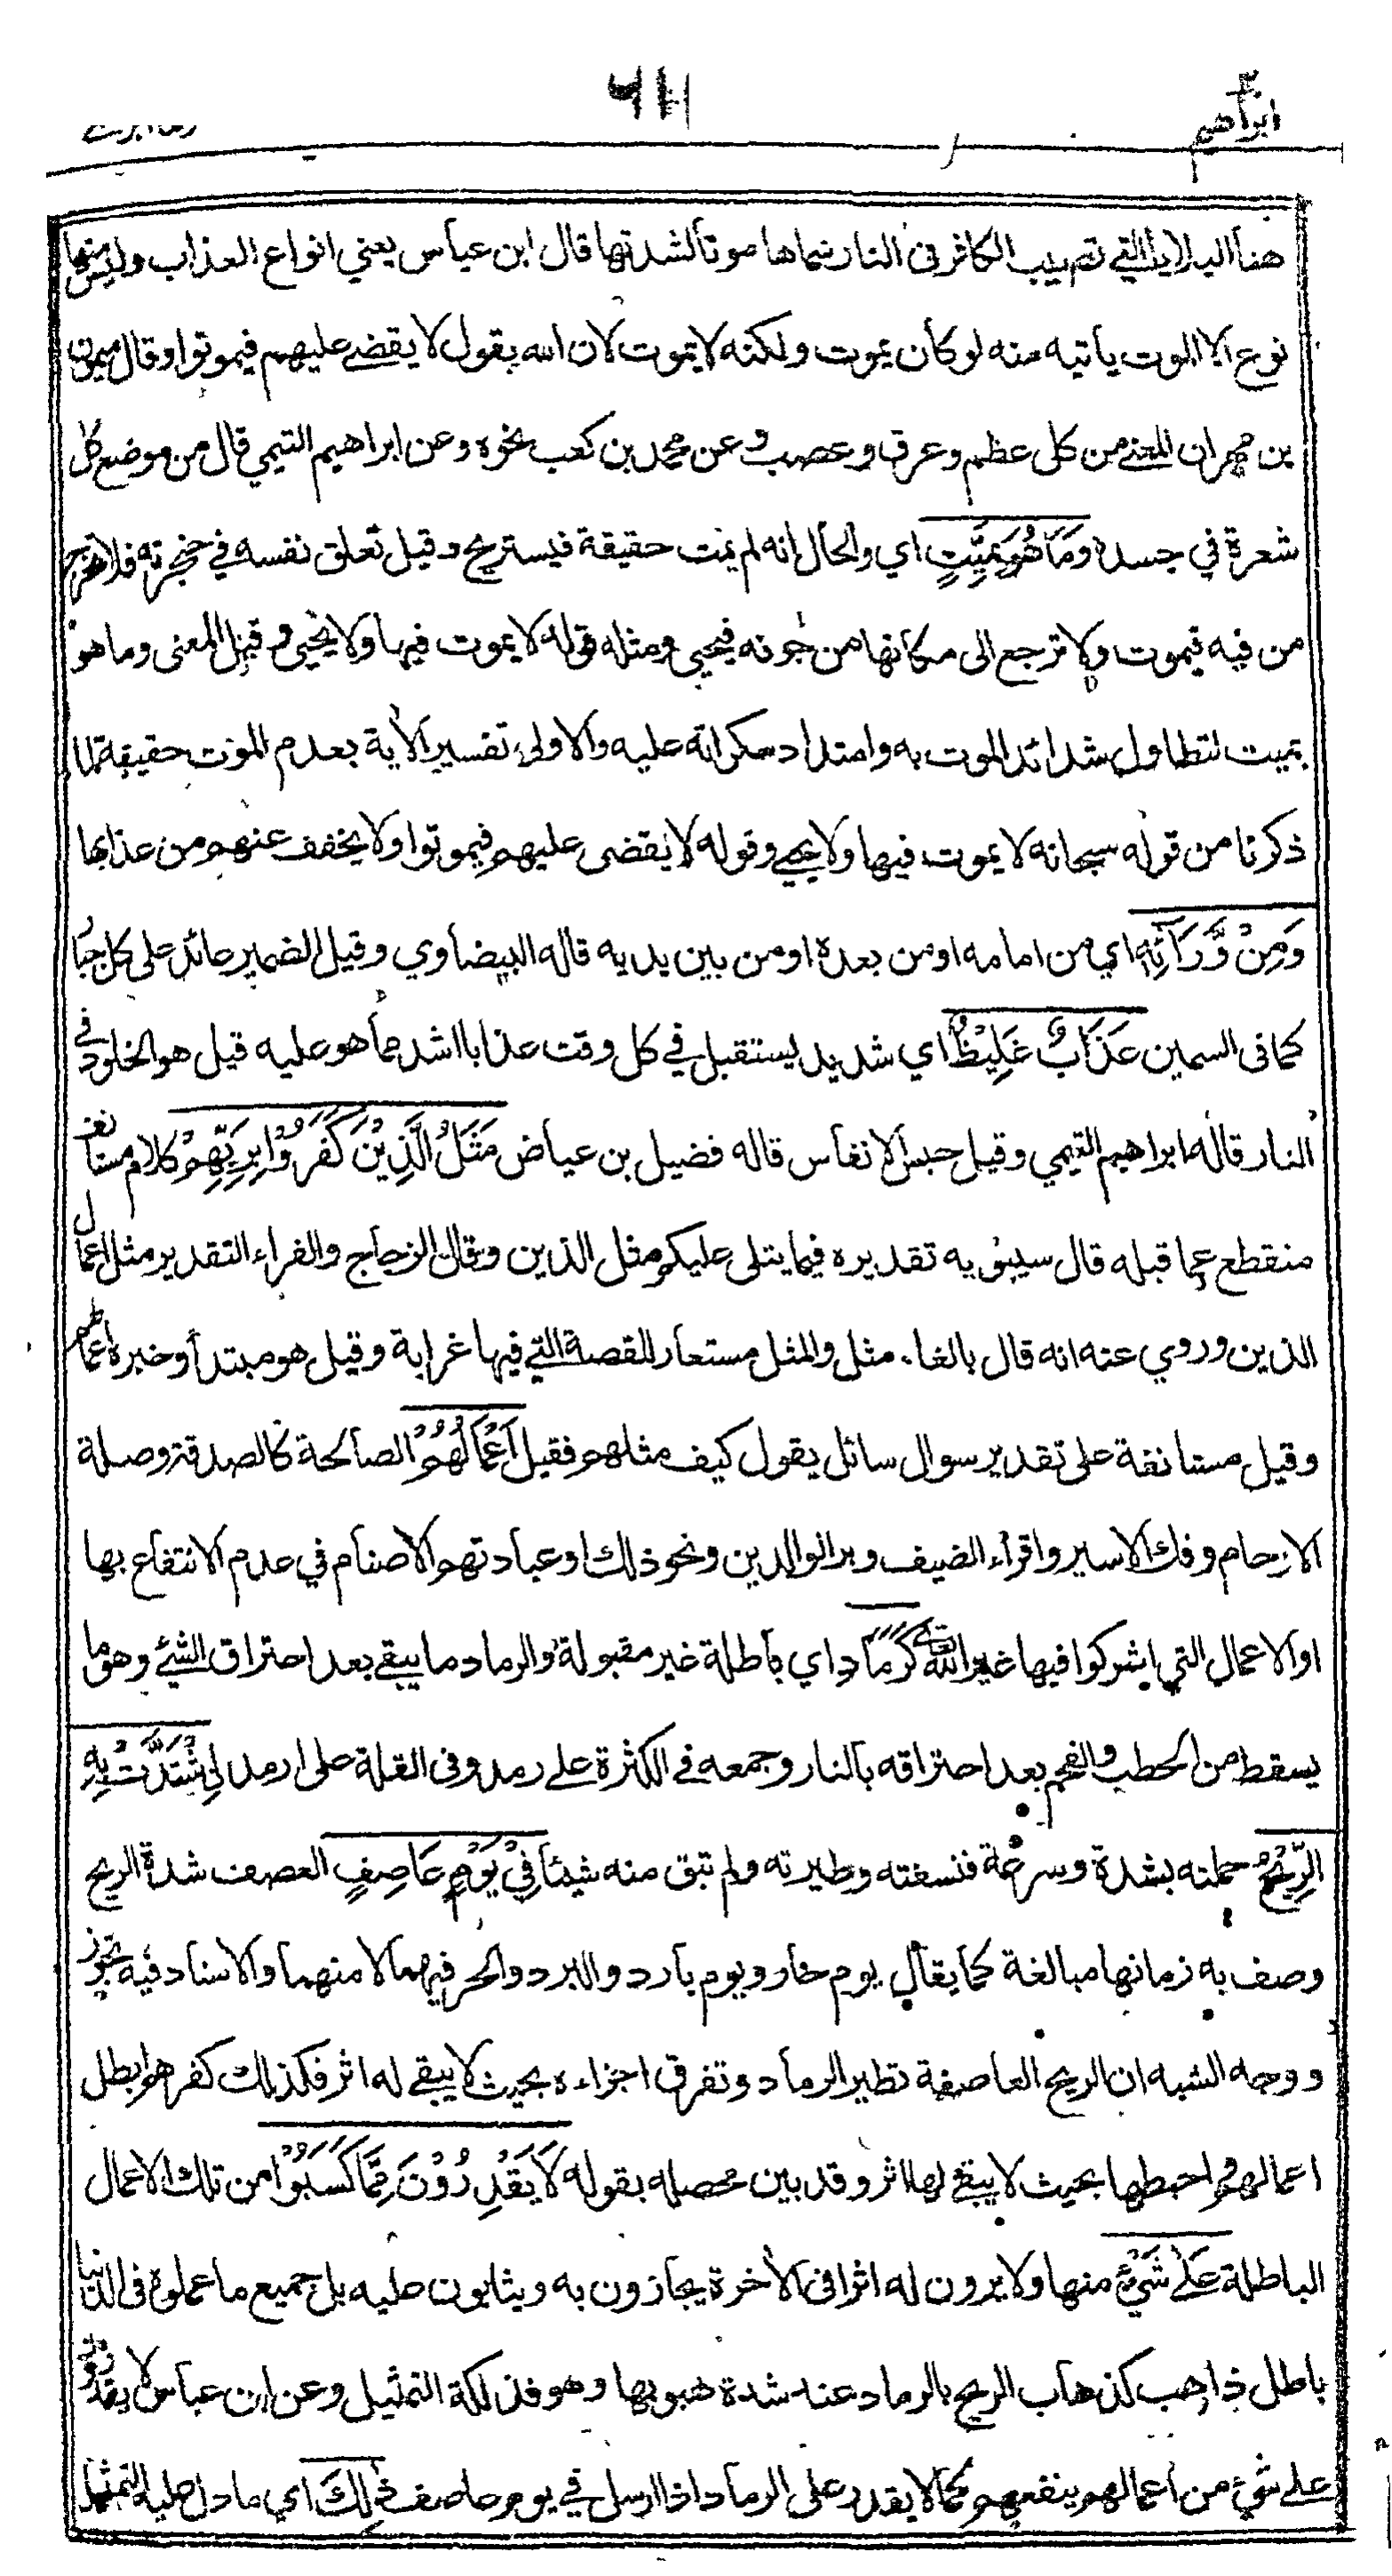 ابراهيم
هنا البلايا التي تصيب الكافر في النار سماها موتا لشدتها قال ابن عباس يعني انواع العذاب وليس منها
نوع الا الموت يأتيه منه لو كان يموت ولكنه لا يموت لان الله يقول لا يقضى عليهم فيموتوا وقال ميمون
بن مهران المعنى من كل عظم وعرق وعصب وعن محمد بن كعب نحوه وعن ابراهيم التيمي قال من موضع كل
شعرة في جسده وَمَا هُوَ بِمَيِّتٍ اي والحال انه لم يمت حقيقة فيستريح وقيل تعلق نفسه في حنجرته فلا تخرج
من فيه فيموت ولا ترجع الى مكانها من جوفه فيحيى ومثله قوله لا يموت فيها ولا يحيى وقيل المعنى وما هو
بميت لتطاول شدائد الموت به وامتداد سكراته عليه والاولى تفسير الآية بعدم الموت حقيقة لما
ذكرنا من قوله سبحانه لا يموت فيها ولا يحيى وقوله لا يقضى عليهم فيموتوا ولا يخفف عنهم من عذابها
وَمِنْ وَّرَآئِهٖ اي من امامه او من بعده او من بين يديه قاله البيضاوي وقيل الضمير عائد على كل جبار
كما في السمين عَذَابٌ غَلِيْظٌ اي شديد يستقبل في كل وقت عذابا اشد مما هو عليه قيل هو الخلود في
النار قاله ابراهيم التيمي وقيل حبس الانفاس قاله فضيل بن عياض مَثَلُ الَّذِيْنَ كَفَرُوْا بِرَبِّهِمْ كلام مستأنف
منقطع عما قبله قال سيبويه تقديره فيما يتلى عليكم مثل الذين وقال الزجاج والفراء التقدير مثل اعمال
الذين وروي عنه انه قال بالغاء مثل والمثل مستعار للقصة التي فيها غرابة وقيل هو مبتدأ وخبره اعمالهم
وقيل مستانفة على تقدير سوال سائل يقول كيف مثلهم فقيل اَعْمَالُهُمْ الصالحة كالصدقة وصلة
الارحام وفك الاسير واقراء الضيف وبر الوالدين ونحو ذلك او عبادتهم الاصنام في عدم الانتفاع بها
او الاعمال التي اشركوا فيها غير الله تعالى كَرَمَادٍ اي باطلة غير مقبولة والرماد ما يبقى بعد احتراق الشئ وهو ما
يسقط من الحطب والفحم بعد احتراقه بالنار وجمعه في الكثرة على رمد وفي القلة على ارمد اِشْتَدَّتْ بِهِ
الرِّيْحُ حملته بشدة وسرعة فنسفته وطيرته ولم تبق منه شيئا فِيْ يَوْمٍ عَاصِفٍ العصف شدة الريح
وصف به زمانها مبالغة كما يقال يوم حار ويوم بارد والبرد والحر فيهما لا منهما والاسناد فيه تجوز
ووجه الشبه ان الريح العاصفة تطير الرماد وتفرق اجزاءه بحيث لا يبقى له اثر فكذلك كفرهم ابطل
اعمالهم واحبطها بحيث لا يبقى لها اثر وقد بين محصله بقوله لَا يَقْدِرُوْنَ مِمَّا كَسَبُوْا من تلك الاعمال
الباطلة عَلٰى شَيْءٍ منها ولا يرون له اثرا في الآخرة يجازون به ويثابون عليه بل جميع ما عملوه في الدنيا
باطل ذاهب كذهاب الريح بالرماد عند شدة هبوبها وهو فذلكة التمثيل وعن ابن عباس لا يقدرون
على شيء من اعمالهم ينفعهم كما لا يقدر على الرماد اذا ارسل في يوم عاصف ذٰلِكَ اي ما دل عليه التمثيل